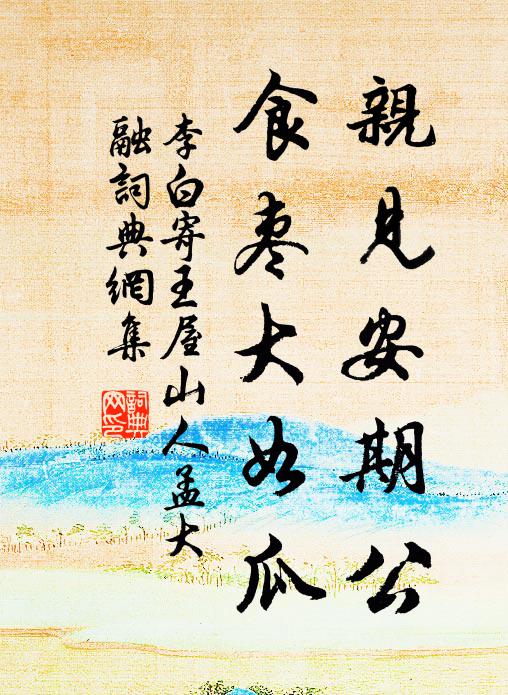 親見安期公
食枣大如瓜
李白寄王屋山人孟大
融詞典網集
詞典
网印